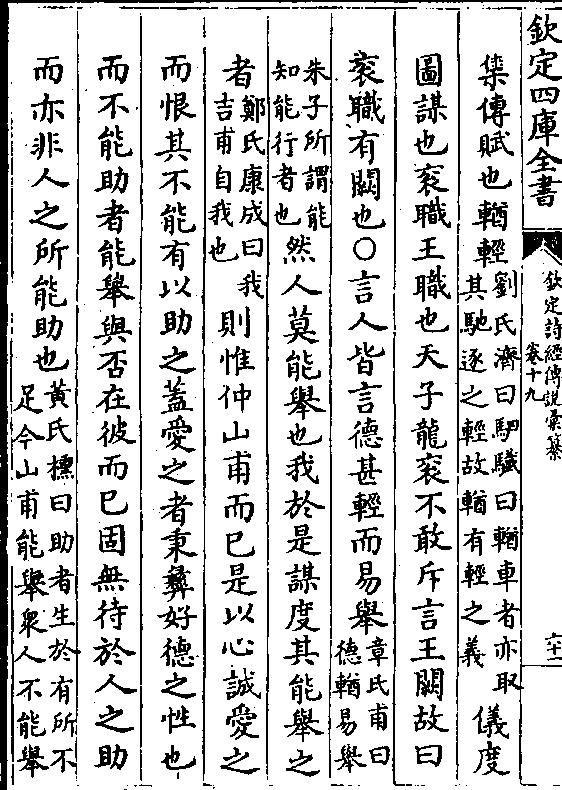 欽定四庫全書
欽定詩經傳說彙纂
卷十九
集傳賦也輶輕劉氏濟曰駟驖曰輶車者亦取其馳逐之輕故輶有輕之義儀度
圖謀也衮職王職也天子龍衮不敢斥言王闕故曰
衮職有闕也○言人皆言德甚輕而易舉章氏甫曰德輶易舉
朱子所謂能知能行者也然人莫能舉也我於是謀度其能舉之
者鄭氏康成曰我吉甫自我也則惟仲山甫而已是以心誠愛之
而恨其不能有以助之蓋愛之者秉彝好德之性也
而不能助者能舉與否在彼而已固無待於人之助
而亦非人之所能助也黃氏櫄曰助者生於有所不足今山甫能舉衆人不能舉